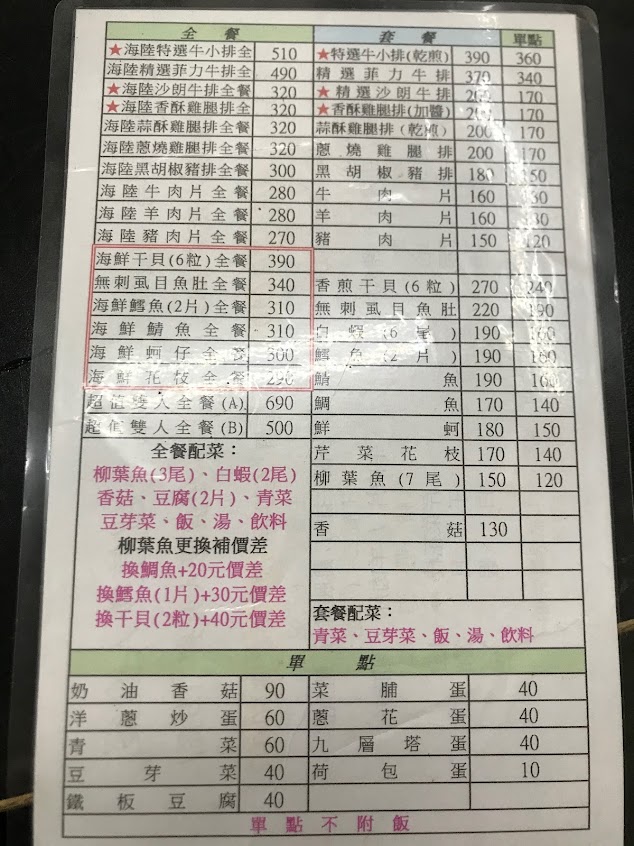 全餐 套餐 單點
★海陸特選牛小排全 510 ★特選牛小排(乾煎) 390 360
海陸精選菲力牛排全 490 精選菲力牛排 370 340
★海陸沙朗牛排全餐 320 ★精選沙朗牛排 200 170
★海陸香酥雞腿排全 320 ★香酥雞腿排(加醬) 200 170
海陸蒜酥雞腿排全餐 320 蒜酥雞腿排(乾煎) 200 170
海陸蔥燒雞腿排全餐 320 蔥燒雞腿排 200 170
海陸黑胡椒豬排全餐 300 黑胡椒豬排 180 150
海陸牛肉片全餐 280 牛肉片 160 130
海陸羊肉片全餐 280 羊肉片 160 130
海陸豬肉片全餐 270 豬肉片 150 120
海鮮干貝(6粒)全餐 390
無刺虱目魚肚全餐 340 香煎干貝(6粒) 270 240
海鮮鱈魚(2片)全餐 310 無刺虱目魚肚 220 190
海鮮鯖魚全餐 310 白蝦(6尾) 190 160
海鮮蚵仔全餐 300 鱈魚(2片) 190 160
海鮮花枝全餐 290 鯖魚 190 160
超值雙人全餐(A) 690 鯛魚 170 140
超值雙人全餐(B) 500 鮮蚵 180 150
全餐配菜： 芹菜花枝 170 140
柳葉魚(3尾)、白蝦(2尾) 柳葉魚(7尾) 150 120
香菇、豆腐(2片)、青菜
豆芽菜、飯、湯、飲料 香菇 130
柳葉魚更換補價差
換鯛魚+20元價差
換鱈魚(1片)+30元價差
換干貝(2粒)+40元價差 套餐配菜：
青菜、豆芽菜、飯、湯、飲料
單點
奶油香菇 90 菜脯蛋 40
洋蔥炒蛋 60 蔥花蛋 40
青菜 60 九層塔蛋 40
豆芽菜 40 荷包蛋 10
鐵板豆腐 40
單點不附飯